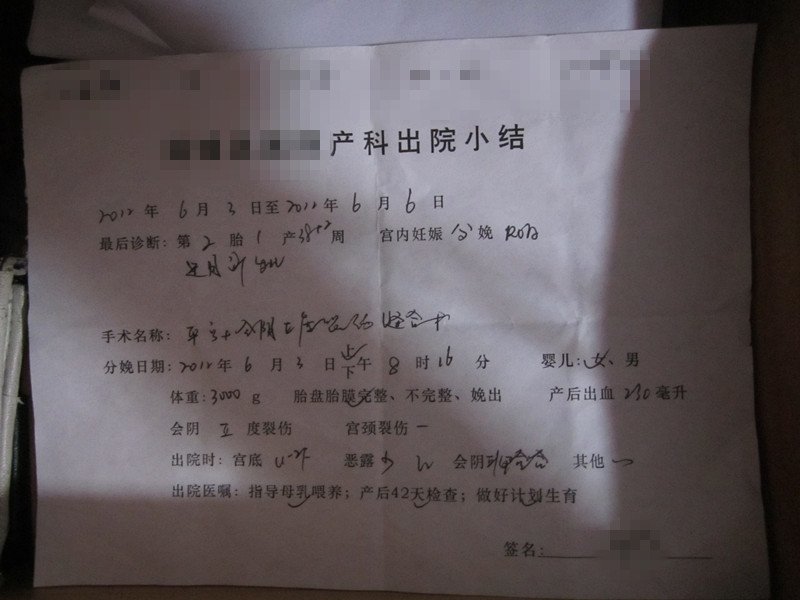 产科出院小结
2012 年 6 月 3 日至 2012 年 6 月 6 日
最后诊断：第 2 胎 1 产 38+2 周 宫内妊娠 分 娩 ROA
手术名称：
分娩日期：2012 年 6 月 3 日 上下 午 8 时 16 分 婴儿：女、男
体重：3000 g 胎盘胎膜完整、不完整、娩出 产后出血 230 毫升
会阴 II 度裂伤 宫颈裂伤 一
出院时：宫底 U-2f 恶露 少 会阴 其他 一
出院医嘱：指导母乳喂养；产后42天检查；做好计划生育
签名：